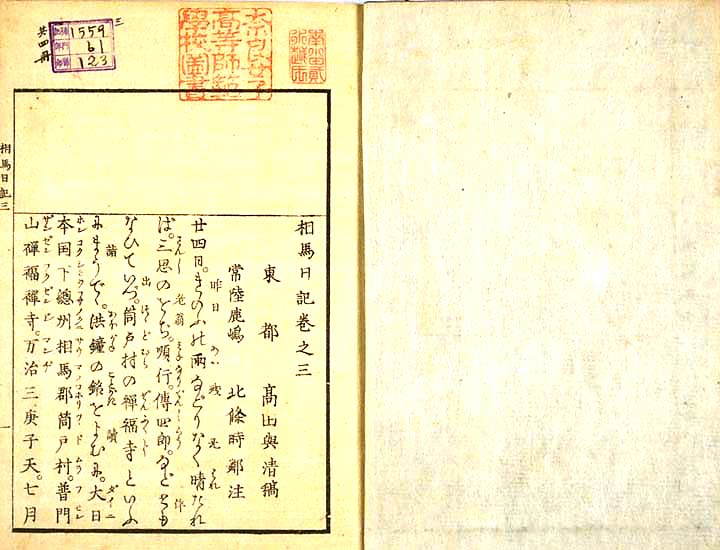 相馬日記巻之三
東都 高田與清稿
常陸鹿嶋 北條時鄰注
廿四日。きのふの雨なごりなく晴たれ
昨日
ば。三思のをぢ。順行。傳四郎。などとも
老翁
なひていづ。筒戸村の禪福寺といふ
出
にまうで。洪鐘の銘をよむに。大日
詣
讀
本国下總州相馬郡筒戸村。普門
山禪福禪寺。万治三庚子天。七月
相馬日記三
奈良女子
高等師範
學校圖書
三
1559
61
123
共四冊